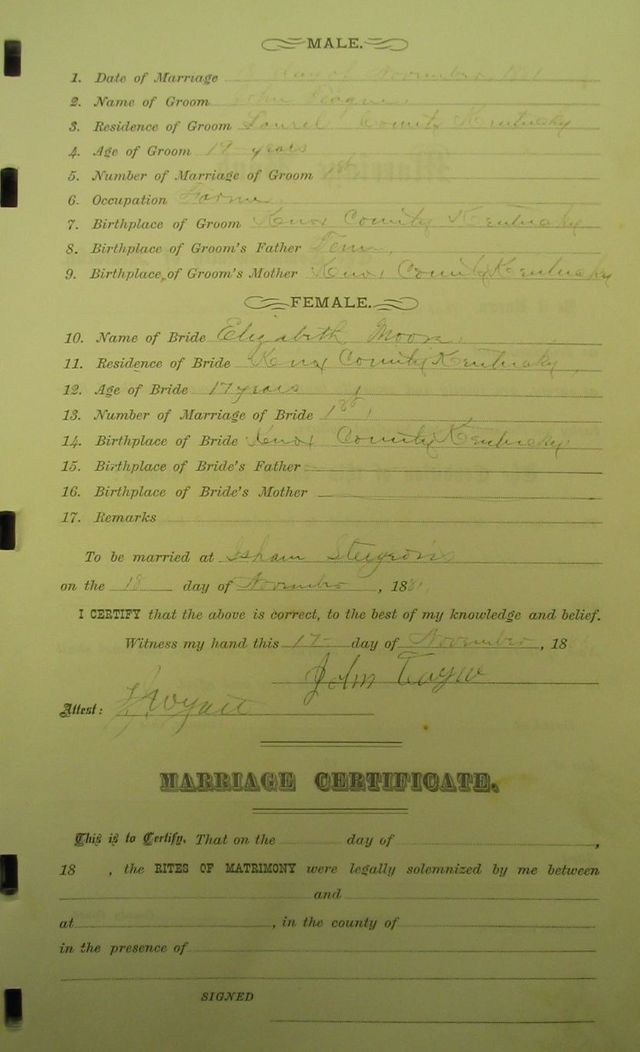 MALE.
1. Date of Marriage day of November, 1881
2. Name of Groom John
3. Residence of Groom Laurel County Kentucky
4. Age of Groom 19 years
5. Number of Marriage of Groom 1st
6. Occupation Farmer
7. Birthplace of Groom Knox County Kentucky
8. Birthplace of Groom's Father Tenn.
9. Birthplace of Groom's Mother Knox County Kentucky
FEMALE.
10. Name of Bride Elizabeth Moore.
11. Residence of Bride Knox County Kentucky,
12. Age of Bride 17 years
13. Number of Marriage of Bride 1st,
14. Birthplace of Bride Knox County Kentucky
15. Birthplace of Bride's Father
16. Birthplace of Bride's Mother
17. Remarks
To be married at Isham
on the 18 day of November, 1881,
I CERTIFY that the above is correct, to the best of my knowledge and belief.
Witness my hand this 17 day of November, 18
John
Attest: Wyatt
MARRIAGE CERTIFICATE.
This is to Certify, That on the day of ,
18 , the RITES OF MATRIMONY were legally solemnized by me between
and
at , in the county of
in the presence of
SIGNED